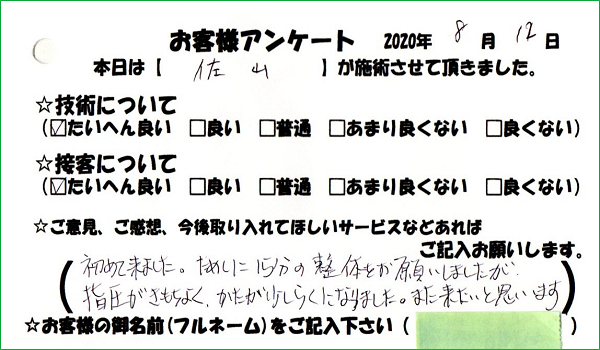 お客様アンケート 2020年 8 月 12 日
本日は【 佐山 】が施術させて頂きました。
☆技術について
(☑たいへん良い □良い □普通 □あまり良くない □良くない)
☆接客について
(☑たいへん良い □良い □普通 □あまり良くない □良くない)
☆ご意見、ご感想、今後取り入れてほしいサービスなどあれば
ご記入お願いします。
初めて来ました。ためしに15分の整体をお願いしましたが
指圧がきもちよく、かたが少しらくになりました。また来たいと思います
☆お客様の御名前(フルネーム)をご記入下さい( )